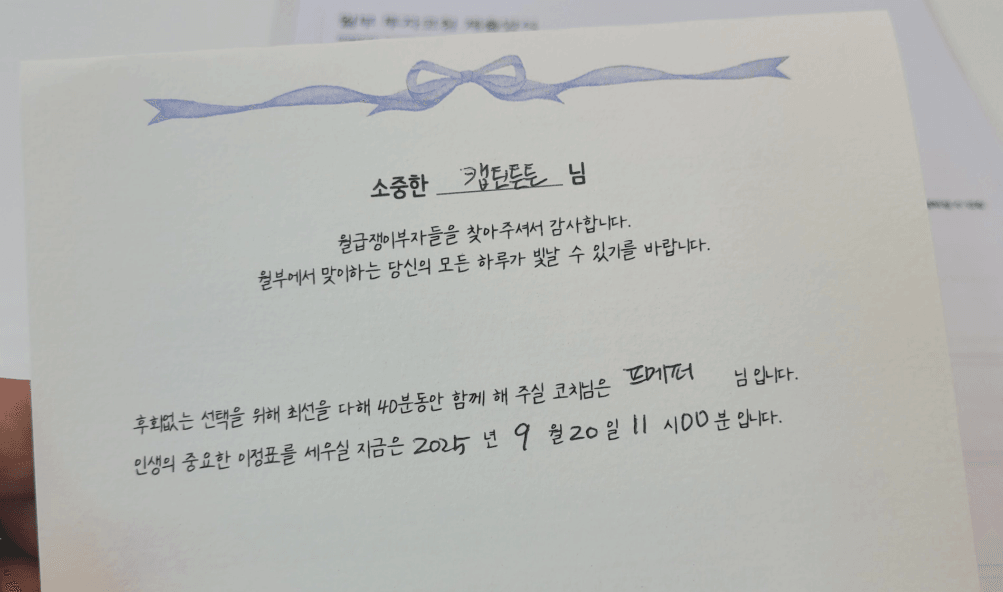 소중한 캡틴튼튼 님
월급쟁이부자들을 찾아주셔서 감사합니다.
월부에서 맞이하는 당신의 모든 하루가 빛날 수 있기를 바랍니다.
후회없는 선택을 위해 최선을 다해 40분동안 함께 해 주실 코치님은 프메퍼 님 입니다.
인생의 중요한 이정표를 세우실 지금은 2025 년 9 월 20 일 11 시 00 분 입니다.